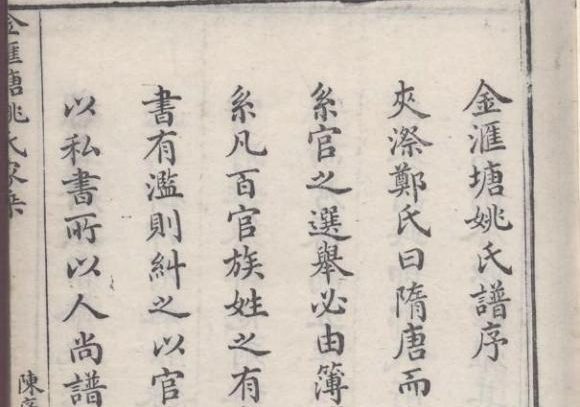 金滙塘姚氏譜序
夾漈鄭氏曰隋唐而
系官之選舉必由簿
系凡百官族姓之有
書有濫則糾之以官
以私書所以人尚譜
金匯塘姚氏家乘
陳序